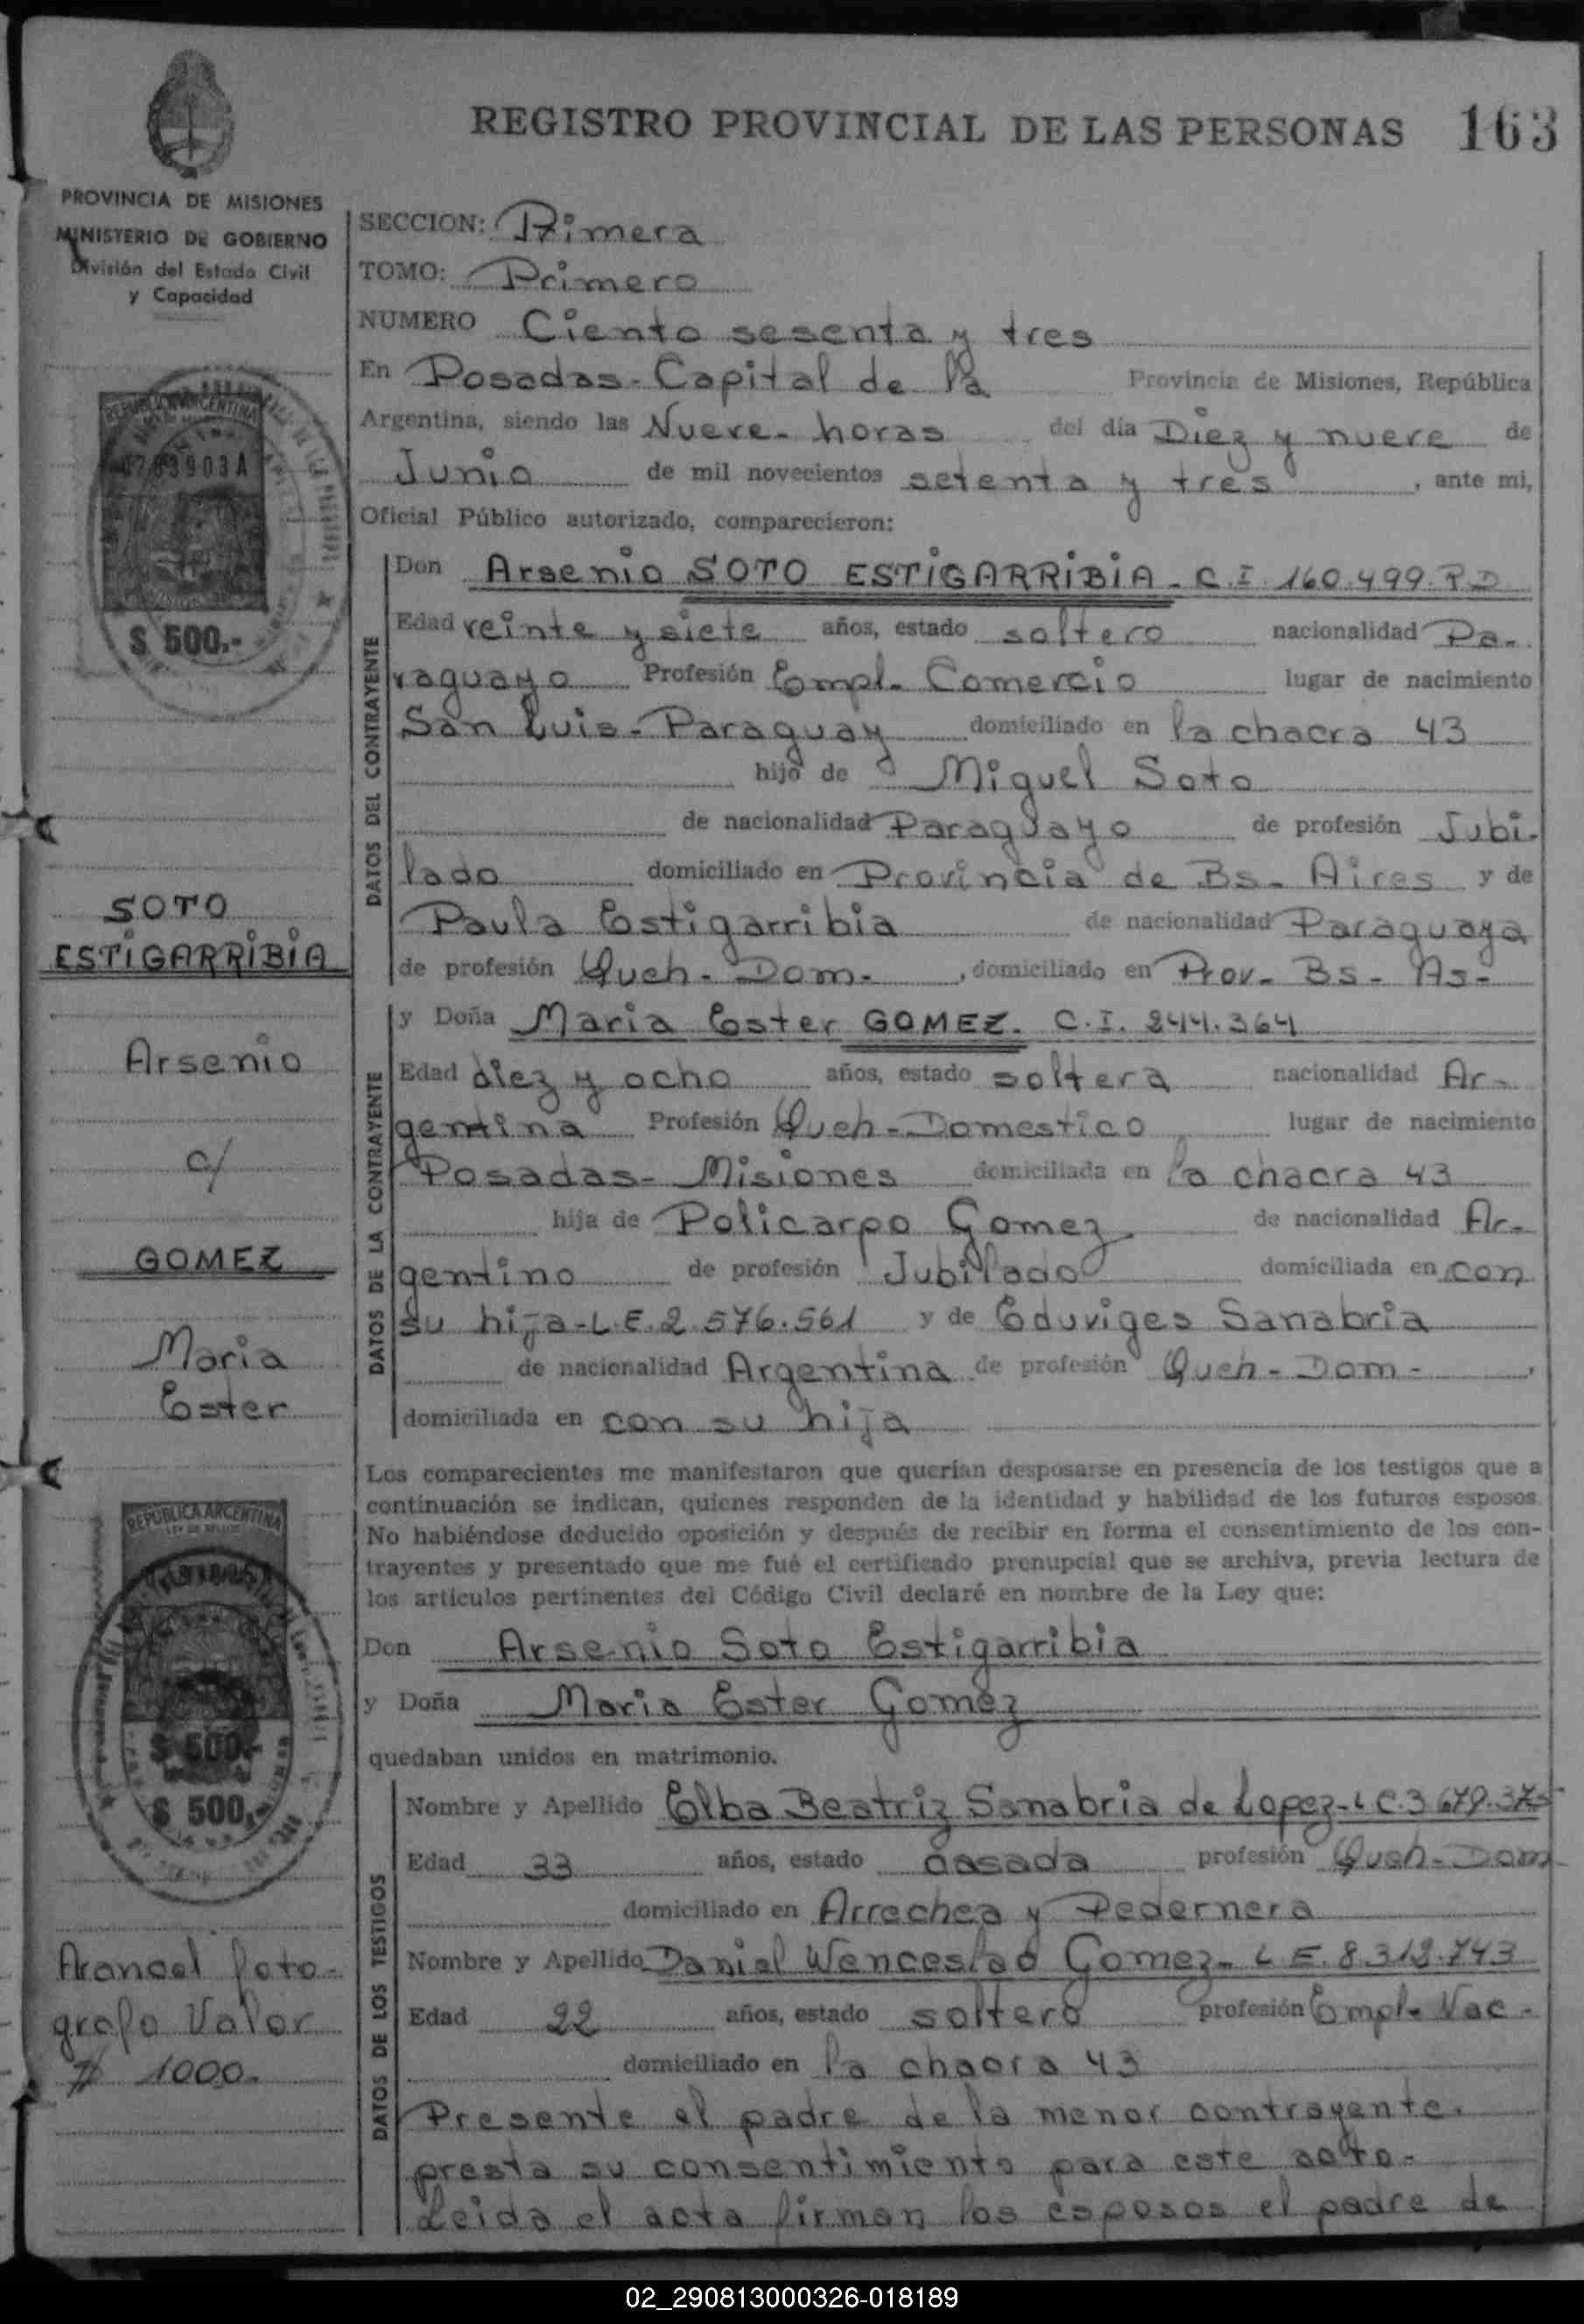 REGISTRO PROVINCIAL DE LAS PERSONAS 163
PROVINCIA DE MISIONES
MINISTERIO DE GOBIERNO
División del Estado Civil
y Capacidad
SECCION: Primera
TOMO: Primero
NUMERO Ciento sesenta y tres
En Posadas - Capital de la Provincia de Misiones, República
Argentina, siendo las Nueve - horas del día Diez y nueve de
Junio de mil novecientos setenta y tres, ante mi,
Oficial Público autorizado, comparecieron:
REPUBLICA ARGENTINA
$ 500.-
DATOS DEL CONTRAYENTE
Don Arsenio SOTO ESTIGARRIBIA - C.I. 160.499.P.D
Edad veinte y siete años, estado soltero nacionalidad Pa-
raguayo Profesión Empl. Comercio lugar de nacimiento
San Luis - Paraguay domiciliado en la chacra 43
hijo de Miguel Soto
de nacionalidad Paraguayo de profesión Jubi-
lado domiciliado en Provincia de Bs - Aires y de
Paula Estigarribia de nacionalidad Paraguaya
de profesión Queh - Dom -, domiciliado en Prov - Bs - As -
SOTO
ESTIGARRIBIA
Arsenio
c/
GOMEZ
Maria
Ester
DATOS DE LA CONTRAYENTE
y Doña Maria Ester GOMEZ. C.I. 244.364
Edad diez y ocho años, estado soltera nacionalidad Ar-
gentina Profesión Queh - Domestico lugar de nacimiento
Posadas - Misiones domiciliada en la chacra 43
hija de Policarpo Gomez de nacionalidad Ar-
gentino de profesión Jubilado domiciliada en con
su hija - L.E. 2.576.561 y de Eduviges Sanabria
de nacionalidad Argentina de profesión Queh - Dom -,
domiciliada en con su hija
Los comparecientes me manifestaron que querían desposarse en presencia de los testigos que a
continuación se indican, quienes responden de la identidad y habilidad de los futuros esposos.
No habiéndose deducido oposición y después de recibir en forma el consentimiento de los con-
trayentes y presentado que me fué el certificado prenupcial que se archiva, previa lectura de
los artículos pertinentes del Código Civil declaré en nombre de la Ley que:
Don Arsenio Soto Estigarribia
y Doña Maria Ester Gomez
quedaban unidos en matrimonio.
REPUBLICA ARGENTINA
LEY DE SELLOS
$ 500.-
$ 500.-
Arancel foto-
grafo Valor
$ 1000.-
DATOS DE LOS TESTIGOS
Nombre y Apellido Elba Beatriz Sanabria de Lopez - L C. 3 679.375
Edad 33 años, estado casada profesión Queh - Dom
domiciliado en Arrechea y Pedernera
Nombre y Apellido Daniel Wenceslao Gomez - L E. 8.312.743
Edad 22 años, estado soltero profesión Empl. Nac -
domiciliado en la chacra 43
Presente el padre de la menor contrayente.
presta su consentimiento para este acto -
Leida el acta firman los esposos el padre de
02_290813000326-018189